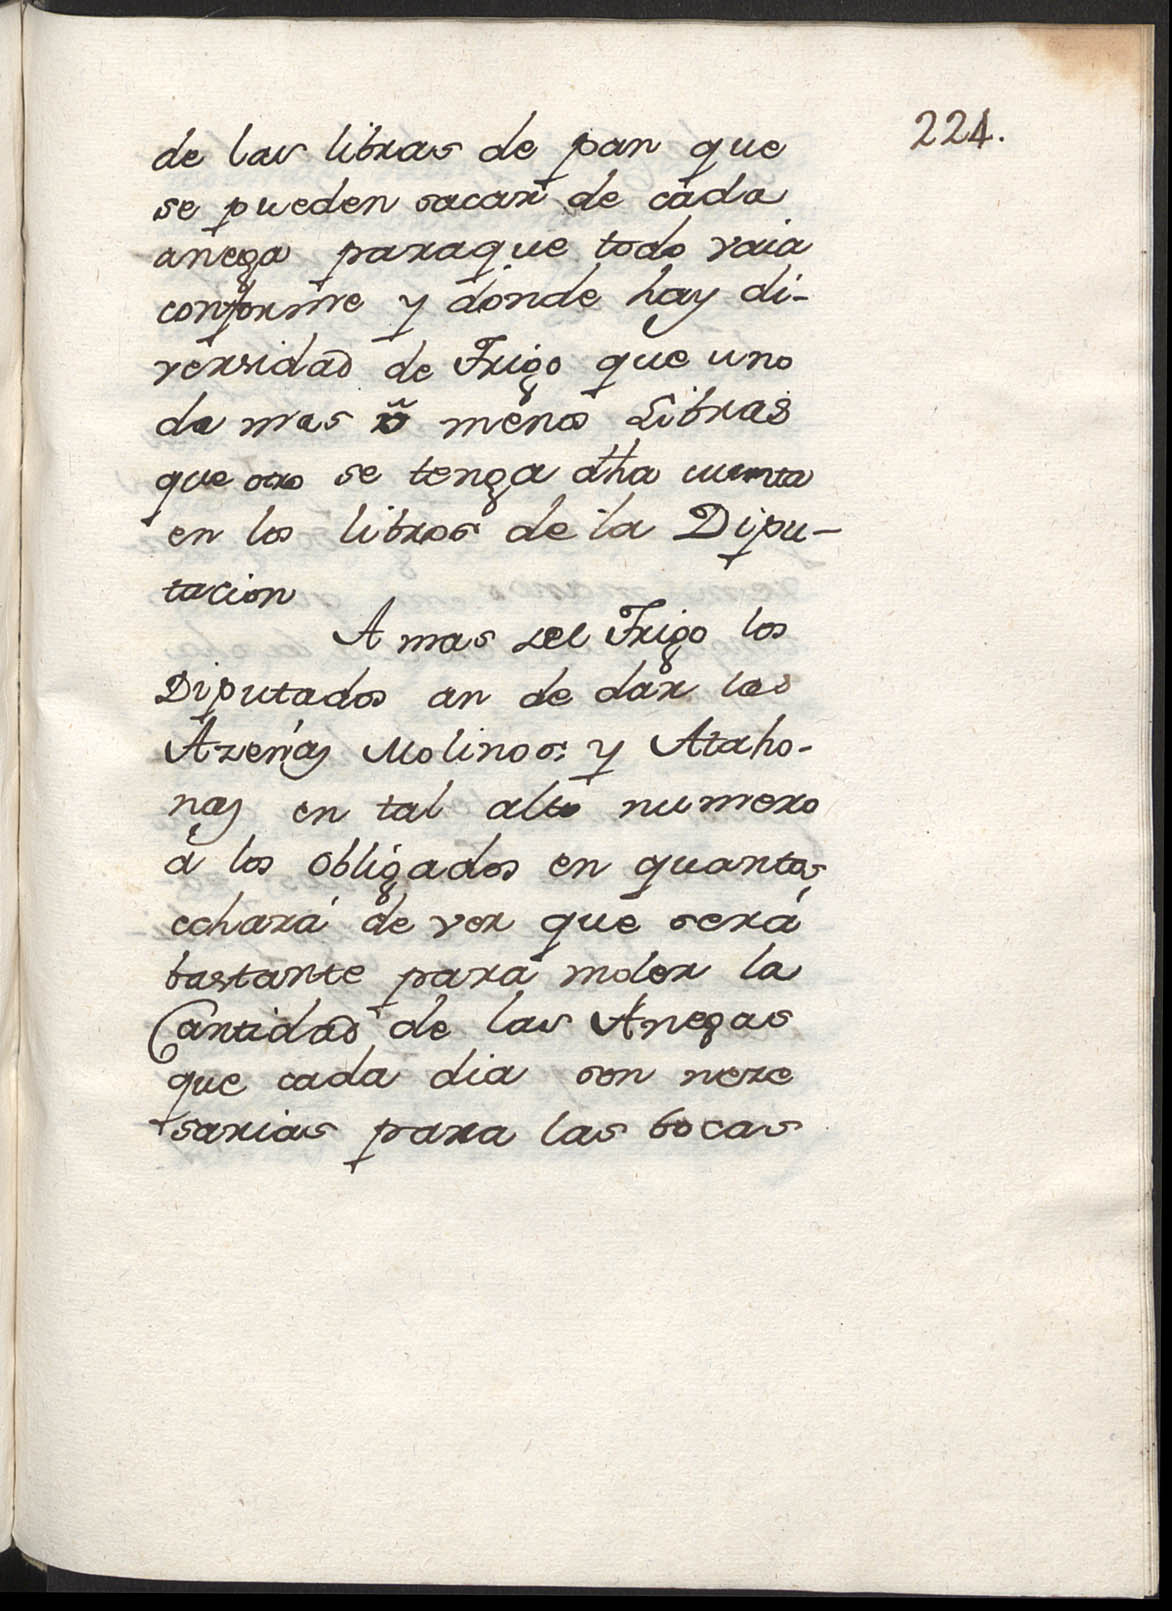 224.
de las libras de pan que
se pueden sacar de cada
anega paraque todo vaia
conforme y donde hay di-
versidad de Trigo que uno
da mas ó menos Libras
que otro se tenga dha cuenta
en los libros de la Dipu-
tacion
A mas del Trigo los
Diputados an de dar las
Azeñas Molinos y Ataho-
nas en tal alto numero
á los obligados en quantos
echará de ver que será
bastante para moler la
Cantidad de las Anegas
que cada dia son neze
sarias para las bocas